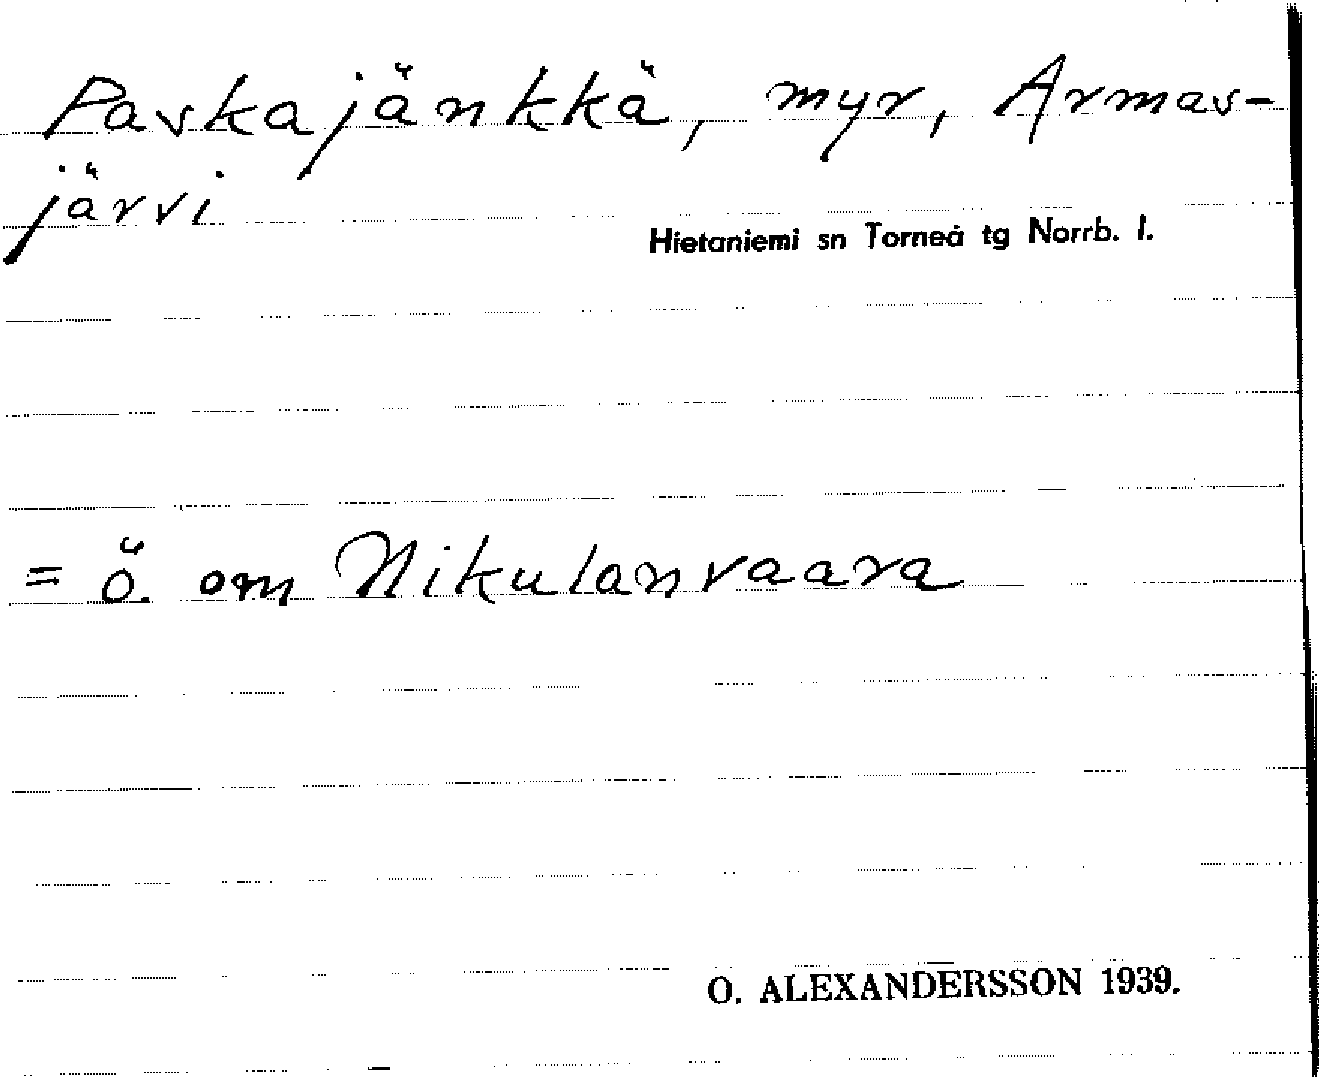 Paskajänkkä, myr, Armas-
järvi
Hietaniemi sn Torneå tg Norrb. l.
= ö. om Nikulanvaara
O. ALEXANDERSSON 1939.